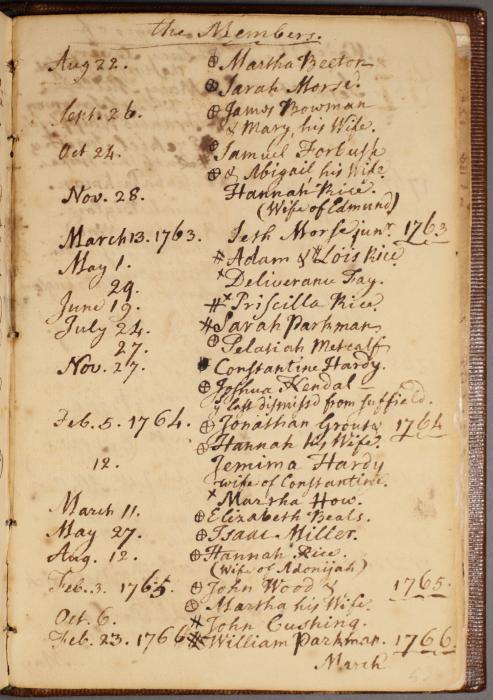 the Members.
Aug 22. ⊕ Martha Beeton
⊕ Sarah Morse.
Sept. 26. ⊕ James Bowman
& Mary, his Wife.
Oct 24. ⊕ Samuel Forbush
⊕ & Abigail his Wife
Nov. 28. Hannah Rice.
(Wife of Edmund)
March 13. 1763. Seth Morse junr. 1763
May 1. # Adam & Lois Rice
29. × Deliverance Fay.
June 19. #× Priscilla Rice.
July 24. # Sarah Parkman
27. ⊕ Pelatiah Metcalf
Nov. 27. Constantine Hardy.
⊕ Joshua Kendal
ye last dismissd from Suffield.
Feb. 5. 1764. ⊕ Jonathan Grout & 1764
⊕ Hannah his Wife
12. Jemima Hardy
wife of Constantine.
× Martha How.
March 11. ⊕ Elizabeth Beals.
May 27. ⊕ Isaac Miller.
Aug. 12. ⊕ Hannah Rice.
(Wife of Adonijah)
Feb. 3. 1765. ⊕ John Wood & 1765.
⊕ Martha his Wife.
Oct. 6. # John Cushing.
Feb. 23. 1766 # William Parkman. 1766
March